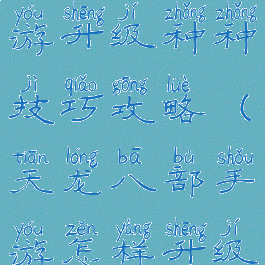 yóu shēng jí zhǒng zhǒng
游升级种种
jì qiǎo gōng lüè
技巧攻略（
tiān lóng bā bù shǒu
天龙八部手
yóu zěn yàng shēng jí
游怎样升级